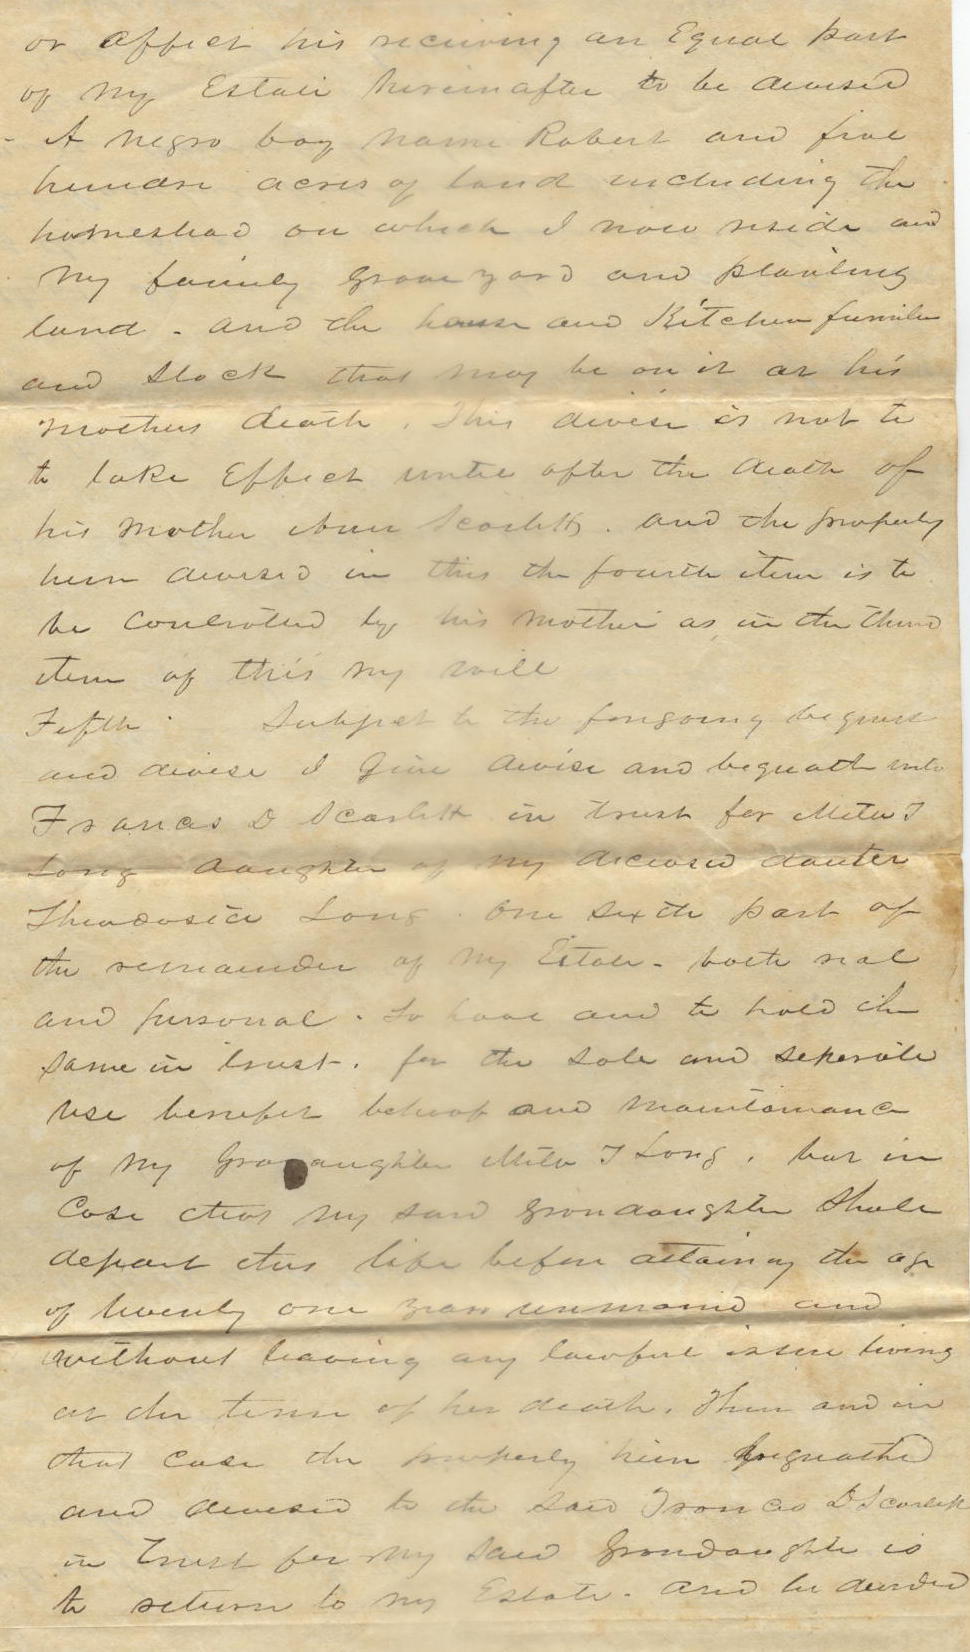 or affect his receiving an Equal part
of my Estate hereinafter to be devised
- A negro boy name Robert and five
hundre acres of land including the
homestead on which I now reside and
my family Grave yard and planting
land - and the house and Kitchen furnitur
and Stock that may be on it at his
mothers death. This devise is not to
to take Effect until after the death of
his mother Ann Scarlett. and the property
hern devised in this the fourth item is to
be controlled by his mother as in the third
item of this my will
Fifth Subject to the forgoing bequest
and devise I Give devise and bequath unto
Francis D Scarlett in trust for Meta T
Long daughter of my deceased dauter
Theodosia Long. One sixth part of
the remainder of my Estate - both real
and personal. To have and to hold the
same in trust. for the sole and seperate
use benefit behoof and maintainance
of my Grandaughter Meta T Long. but in
Case that my said grandaughter shale
depart this life before attaining the age
of twenty one years unmarried and
without leaving any lawful issue living
at the time of her death. Then and in
that case the property hern bequathed
and devised to the said Francis D Scarlett
in Trust for my said Grandaughter is
to return to my Estate - and be divided